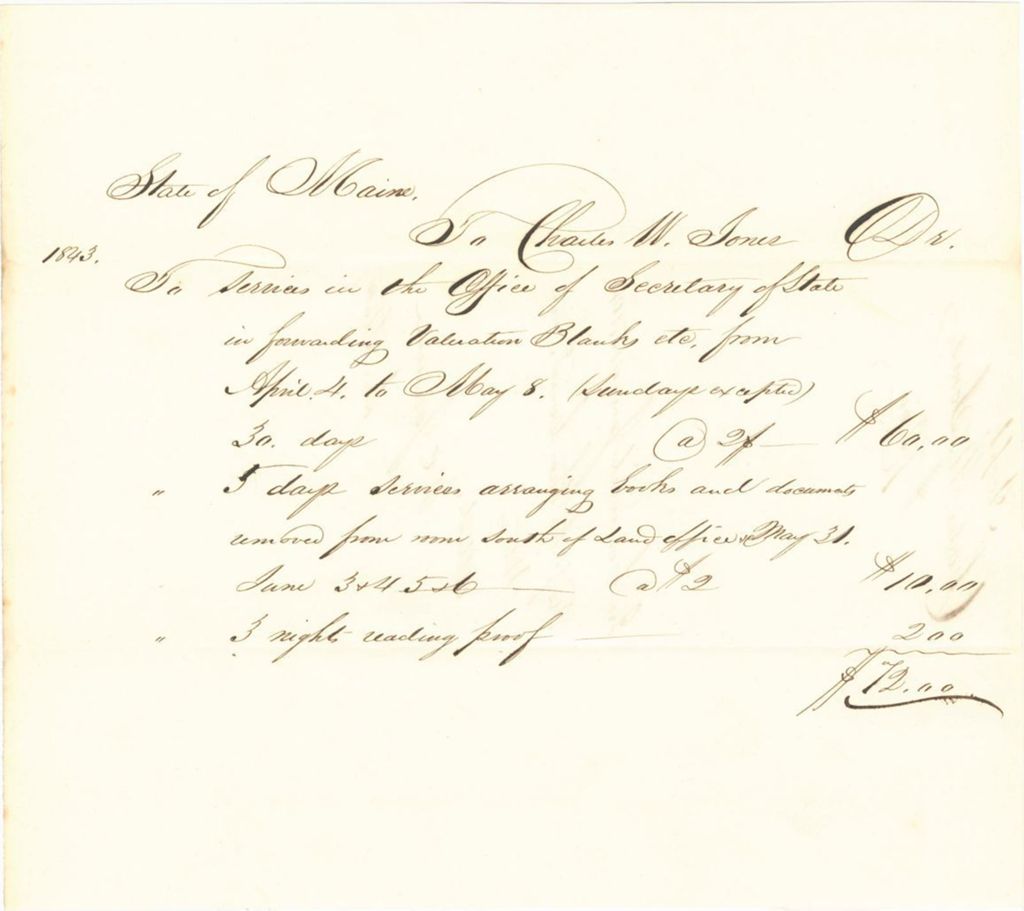 State of Maine,
To Charles W. Jones Dr.
1843.
To services in the Office of Secretary of State
in forwarding Valuation Blanks etc, from
April 4. to May 8. (Sundays excepted)
30. days @ 2$ $60,00
" 5 days services arranging books and documents
removed from room south of Land office, May 31.
June 3 & 4 5 & 6 @ $2 $10,00
" 3 nights reading proof 200
$72.00